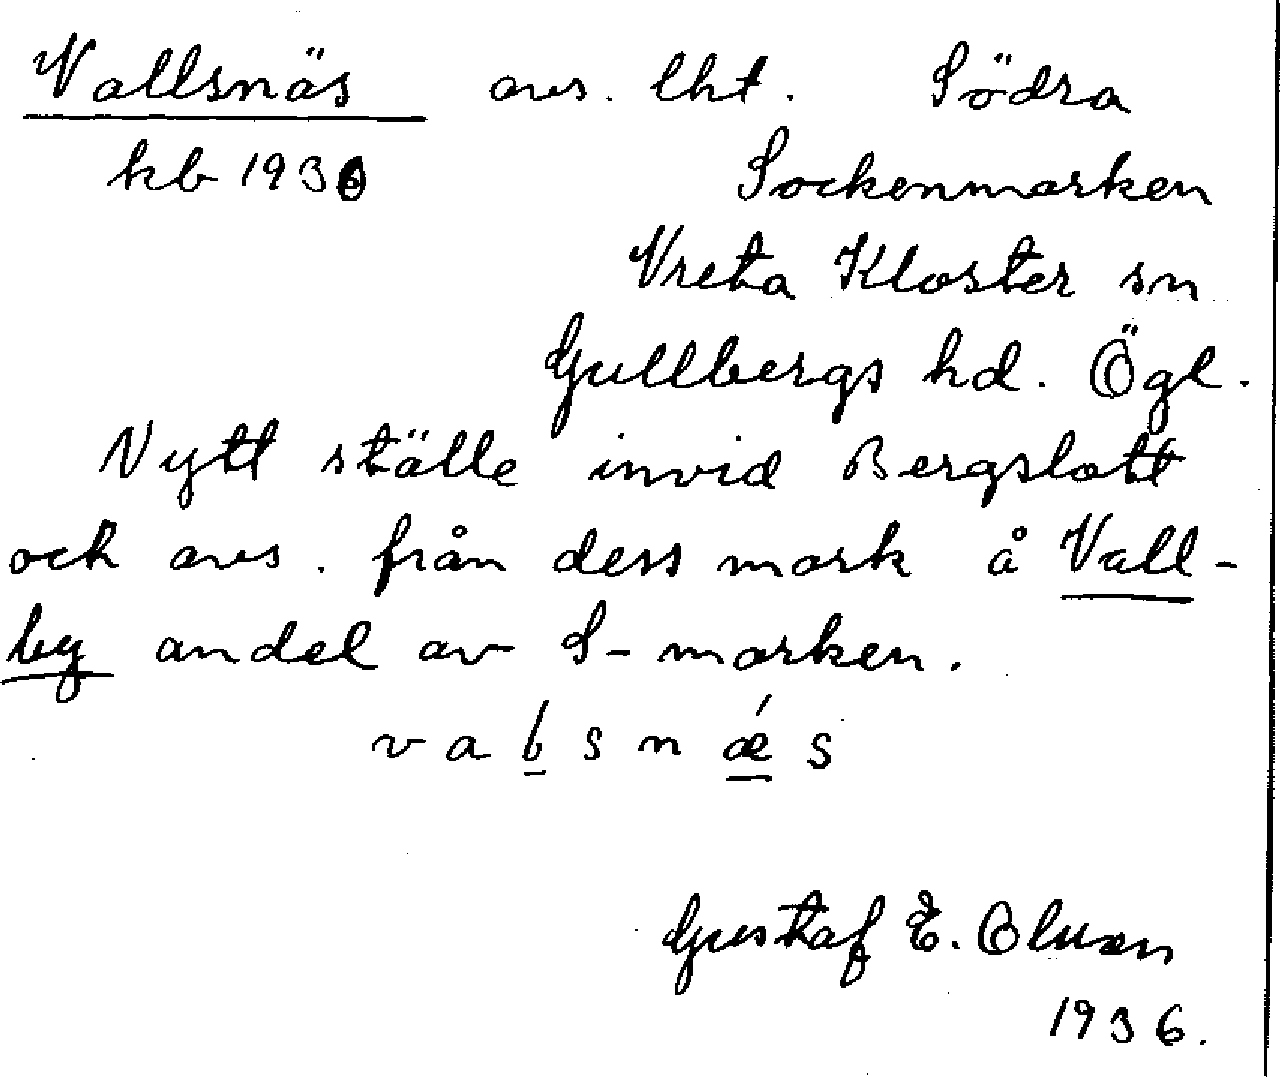 Vallsnäs avs. lht. Södra
kb 1930 Sockenmarken
Vreta Kloster sn
Gullbergs hd. Ögl.
Nytt ställe invid Bergslott
och avs. från dess mark å Vall-
by andel av S-marken.
v a s n ǽ s
Gustaf E.
1936.